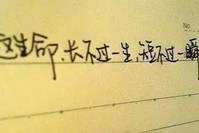 No.
这生命,长不过一生,短不过一瞬